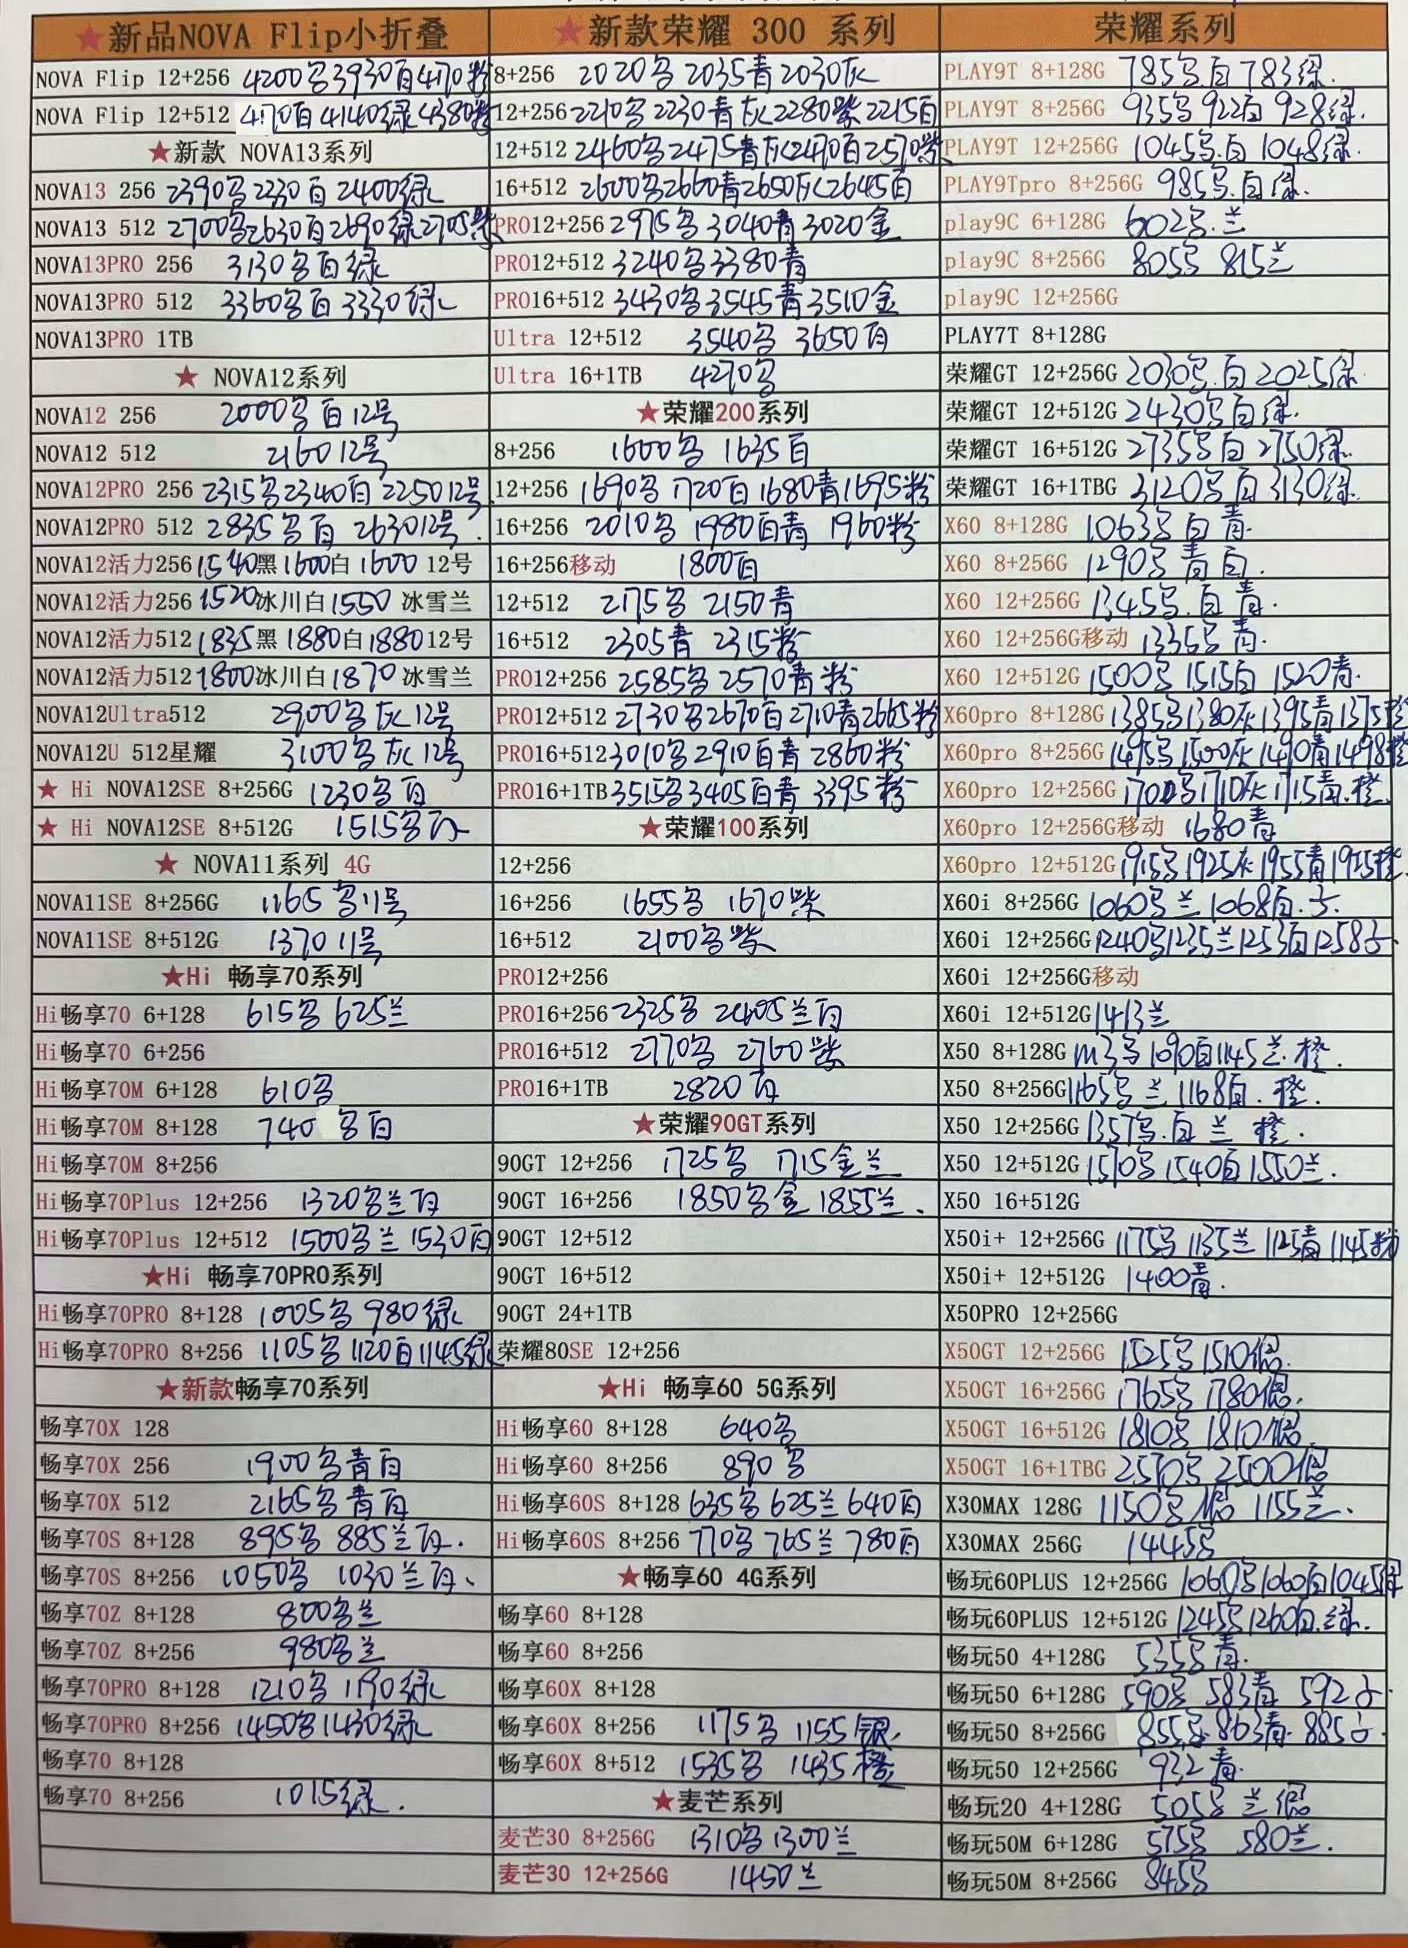 ★新品NOVA Flip小折叠
NOVA Flip 12+256 4200名3930白4170粉
NOVA Flip 12+512 4170白4140绿4380粉
★新款 NOVA13系列
NOVA13 256 2390名2230白2400绿
NOVA13 512 2700名2630白2690绿2705紫
NOVA13PRO 256 3130名白绿
NOVA13PRO 512 3360名白3330绿
NOVA13PRO 1TB
★ NOVA12系列
NOVA12 256 2000名白12号
NOVA12 512 2160 12号
NOVA12PRO 256 2315名2340白2250 12号
NOVA12PRO 512 2835名白 2630 12号.
NOVA12活力256 1540黑1600白1600 12号
NOVA12活力256 1520冰川白1550 冰雪兰
NOVA12活力512 1835黑 1880白1880 12号
NOVA12活力512 1800冰川白1870 冰雪兰
NOVA12Ultra512 2900名灰12号
NOVA12U 512星耀 3100名灰12号
★ Hi NOVA12SE 8+256G 1230名白
★ Hi NOVA12SE 8+512G 1515名白
★ NOVA11系列 4G
NOVA11SE 8+256G 1165名11号
NOVA11SE 8+512G 1370 11号
★Hi 畅享70系列
Hi畅享70 6+128 615名 625兰
Hi畅享70 6+256
Hi畅享70M 6+128 610名
Hi畅享70M 8+128 740名白
Hi畅享70M 8+256
Hi畅享70Plus 12+256 1320名兰白
Hi畅享70Plus 12+512 1500名兰1530白
★Hi 畅享70PRO系列
Hi畅享70PRO 8+128 1005名 980绿
Hi畅享70PRO 8+256 1105名1120白1145绿
★新款畅享70系列
畅享70X 128
畅享70X 256 1900名青白
畅享70X 512 2165名青白
畅享70S 8+128 895名 885兰白.
畅享70S 8+256 1050名 1030兰白、
畅享70Z 8+128 800名兰
畅享70Z 8+256 980名兰
畅享70PRO 8+128 1210名1190绿
畅享70PRO 8+256 1450名1430绿
畅享70 8+128
畅享70 8+256 1015绿.
★新款荣耀 300 系列
8+256 2020名 2035青2030灰
12+256 2210名 2230青灰2280紫2215白
12+512 2460名2475青灰2470白2570紫
16+512 2600名2660青2650灰2645白
PRO12+256 2975名 3040青3020金
PRO12+512 3240名3380青
PRO16+512 3430名3545青3510金
Ultra 12+512 3540名 3650白
Ultra 16+1TB 4270名
★荣耀200系列
8+256 1600名 1635白
12+256 1690名 1720白1680青1695粉
16+256 2010名 1980白青 1960粉
16+256移动 1800白
12+512 2175名 2150青
16+512 2305青 2315粉
PRO12+256 2585名2570青粉
PRO12+512 2730名2670白2710青2665粉
PRO16+512 3010名2910白青2860粉
PRO16+1TB 3515名3405白青 3395粉
★荣耀100系列
12+256
16+256 1655名 1670紫
16+512 2100名紫
PRO12+256
PRO16+256 2325名 2405兰白
PRO16+512 2770名 2760紫
PRO16+1TB 2820白
★荣耀90GT系列
90GT 12+256 1725名 1715金兰
90GT 16+256 1850名金1855兰.
90GT 12+512
90GT 16+512
90GT 24+1TB
荣耀80SE 12+256
★Hi 畅享60 5G系列
Hi畅享60 8+128 640名
Hi畅享60 8+256 890名
Hi畅享60S 8+128 635名 625兰640白
Hi畅享60S 8+256 770名 765兰780白
★畅享60 4G系列
畅享60 8+128
畅享60 8+256
畅享60X 8+128
畅享60X 8+256 1175名 1155银.
畅享60X 8+512 1535名 1435橙
★麦芒系列
麦芒30 8+256G 1310名1300兰
麦芒30 12+256G 1450兰
荣耀系列
PLAY9T 8+128G 785名白783绿.
PLAY9T 8+256G 935名922白928绿.
PLAY9T 12+256G 1045名.白1048绿.
PLAY9Tpro 8+256G 985名.白绿.
play9C 6+128G 602名.兰
play9C 8+256G 805名 815兰
play9C 12+256G
PLAY7T 8+128G
荣耀GT 12+256G 2030名.白2025绿
荣耀GT 12+512G 2430名白绿.
荣耀GT 16+512G 2735名白2750绿.
荣耀GT 16+1TBG 3120名白3130绿.
X60 8+128G 1063名白青.
X60 8+256G 1290名青白.
X60 12+256G 1345名.白青.
X60 12+256G移动 1335名青.
X60 12+512G 1500名1515白1520青.
X60pro 8+128G 1385名1380灰1395青1375橙
X60pro 8+256G 1495名1500灰1490青1498橙
X60pro 12+256G 名1710灰1715青.橙.
X60pro 12+256G移动 1680青
X60pro 12+512G 1915名1925灰1955青1925橙
X60i 8+256G 1060名兰1068白.
X60i 12+256G 1240名1235兰1253白1258
X60i 12+256G移动
X60i 12+512G 1413兰
X50 8+128G 名1090白1145兰.橙.
X50 8+256G 1165名兰1168白.橙.
X50 12+256G 1357名.白兰 橙.
X50 12+512G 1510名1540白1550兰.
X50 16+512G
X50i+ 12+256G 1175名1135兰1125青1145粉
X50i+ 12+512G 1400青.
X50PRO 12+256G
X50GT 12+256G 1525名1510银.
X50GT 16+256G 1765名1780银.
X50GT 16+512G 1810名1810银
X50GT 16+1TBG 2570名2500银
X30MAX 128G 1150名银1155兰.
X30MAX 256G 1445名
畅玩60PLUS 12+256G 1060名1060白1045绿
畅玩60PLUS 12+512G 1245名1260白.绿.
畅玩50 4+128G 535名青.
畅玩50 6+128G 590名 583青 592
畅玩50 8+256G 855名863青.885
畅玩50 12+256G 932青.
畅玩20 4+128G 505名兰银
畅玩50M 6+128G 575名 580兰.
畅玩50M 8+256G 845名